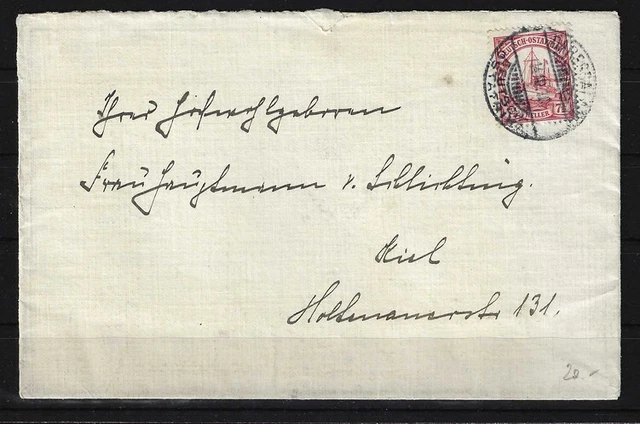 DEUTSCH-OSTAFRIKA
7½ HELLER
DARESSALAM
Ihrer Hochwohlgeboren
Frau Hauptmann v. Schlichting.
Kiel
Holtenauerstr 131.
20.-